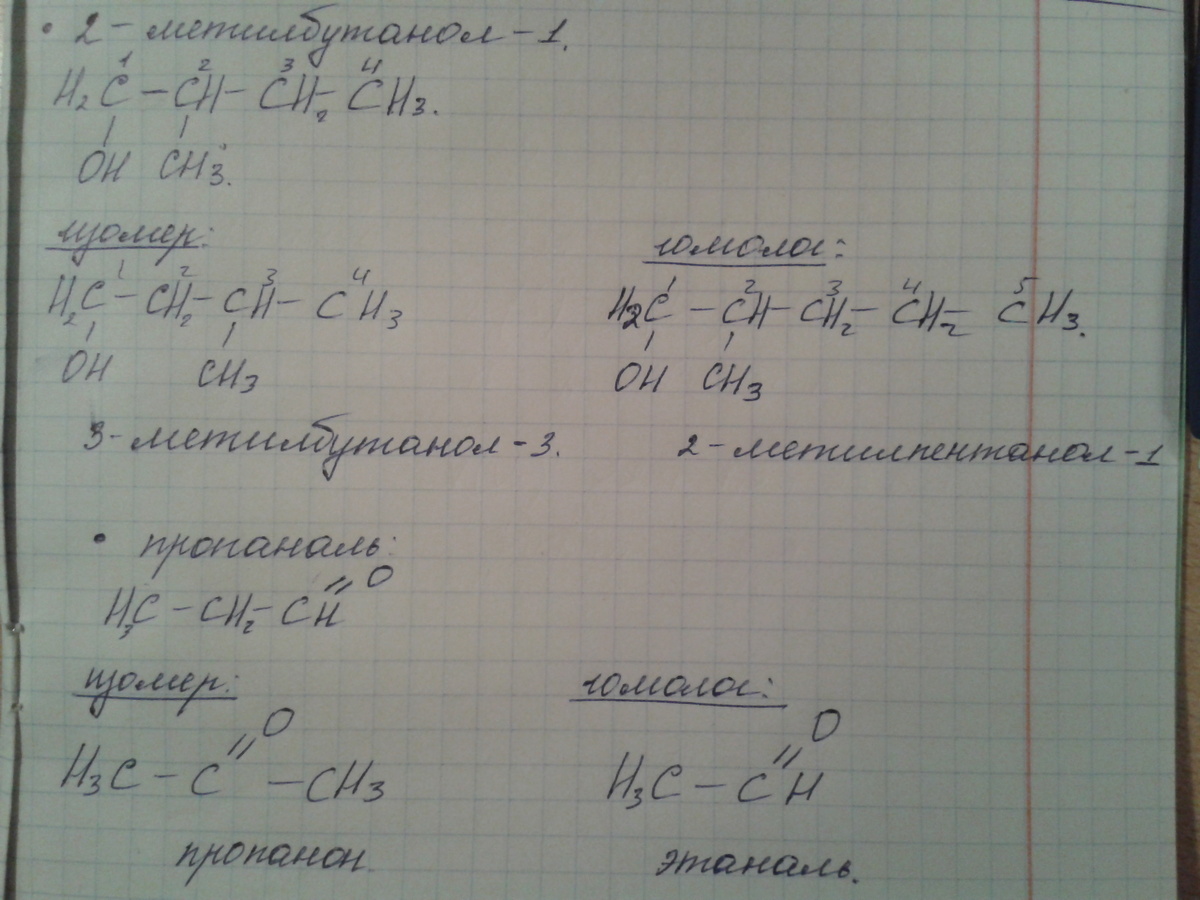 • 2-метилбутанол-1.
1 2 3 4
H₂C – CH – CH₂ – CH₃.
OH CH₃.
изомер:
1 2 3 4
H₂C – CH₂ – CH – CH₃
OH CH₃
3-метилбутанол-3.
гомолог:
1 2 3 4 5
H₂C – CH – CH₂ – CH₂ CH₃.
OH CH₃
2-метилпентанол-1
• пропаналь:
O
H₃C – CH₂ – CH
изомер:
O
H₃C – C – CH₃
пропанон
гомолог:
O
H₃C – CH
этаналь.